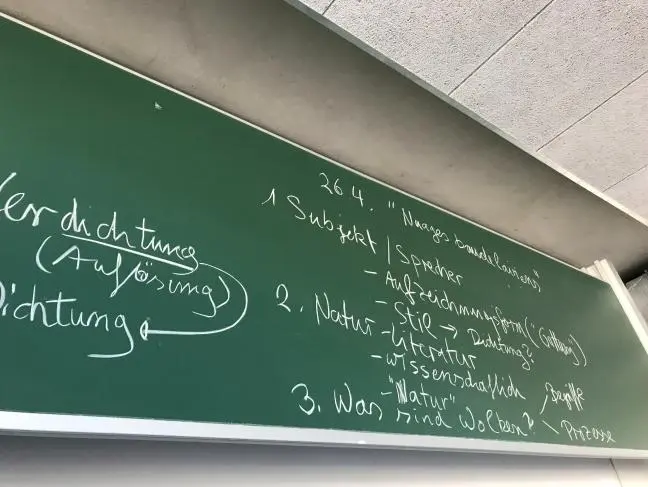 Verdichtung
(Auflösung)
Dichtung
26 4. "Nuages baudelairiens"
1 Subjekt / Sprecher
- Aufzeichnungsform ("Gattung")
- Stil → Dichtung?
2. Natur-Literatur
- wissenschaftlich
- "Natur"
3. Was sind Wolken?
Begriffe
Prozesse